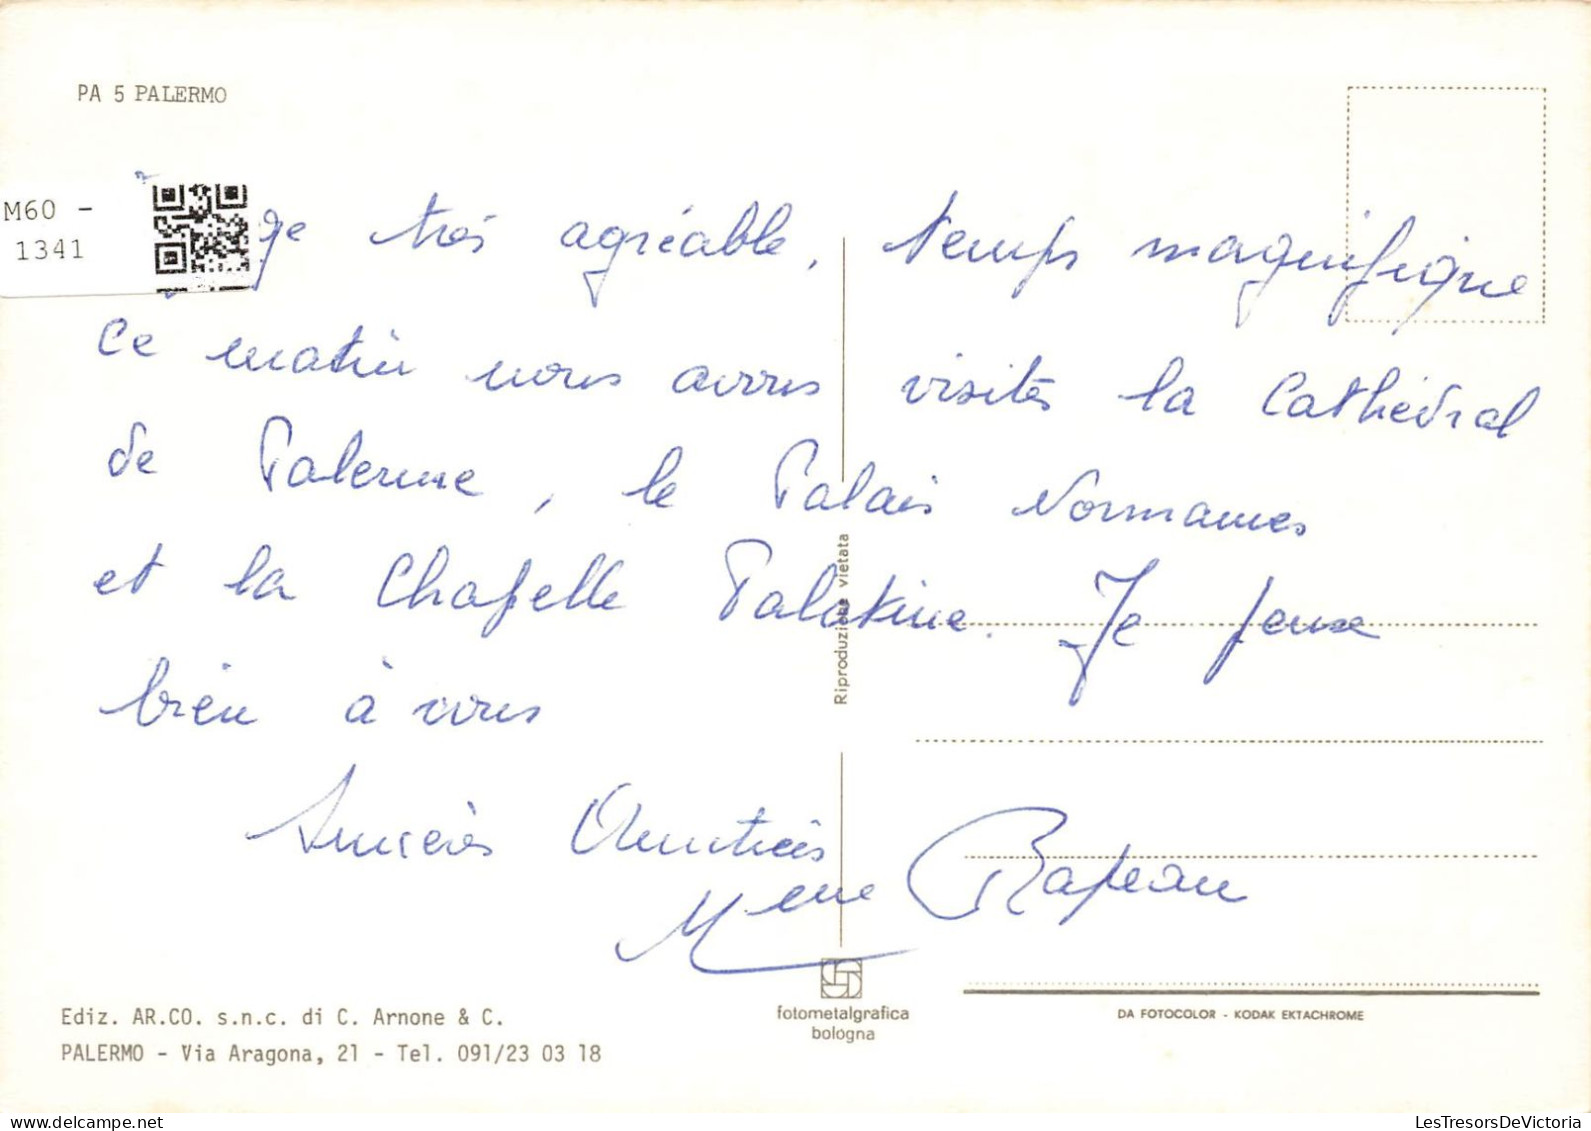 PA 5 PALERMO
M60 -
1341
ge très agréable, temps magnifique
Ce matin nous avons visités la Cathédral
de Palerme, le Palais Normannes
et la Chapelle Palatine. Je pense
bien à vous
Sincères Amitiés
Mme Rapeau
Riproduzione vietata
Ediz. AR.CO. s.n.c. di C. Arnone & C.
PALERMO - Via Aragona, 21 - Tel. 091/23 03 18
fotometalgrafica
bologna
DA FOTOCOLOR - KODAK EKTACHROME
LesTresorsDeVictoria